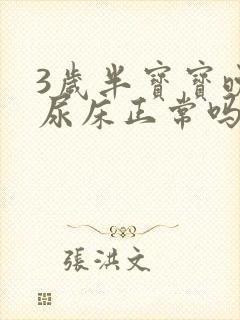 3歲半寶寶
尿床正常吗
張洪文